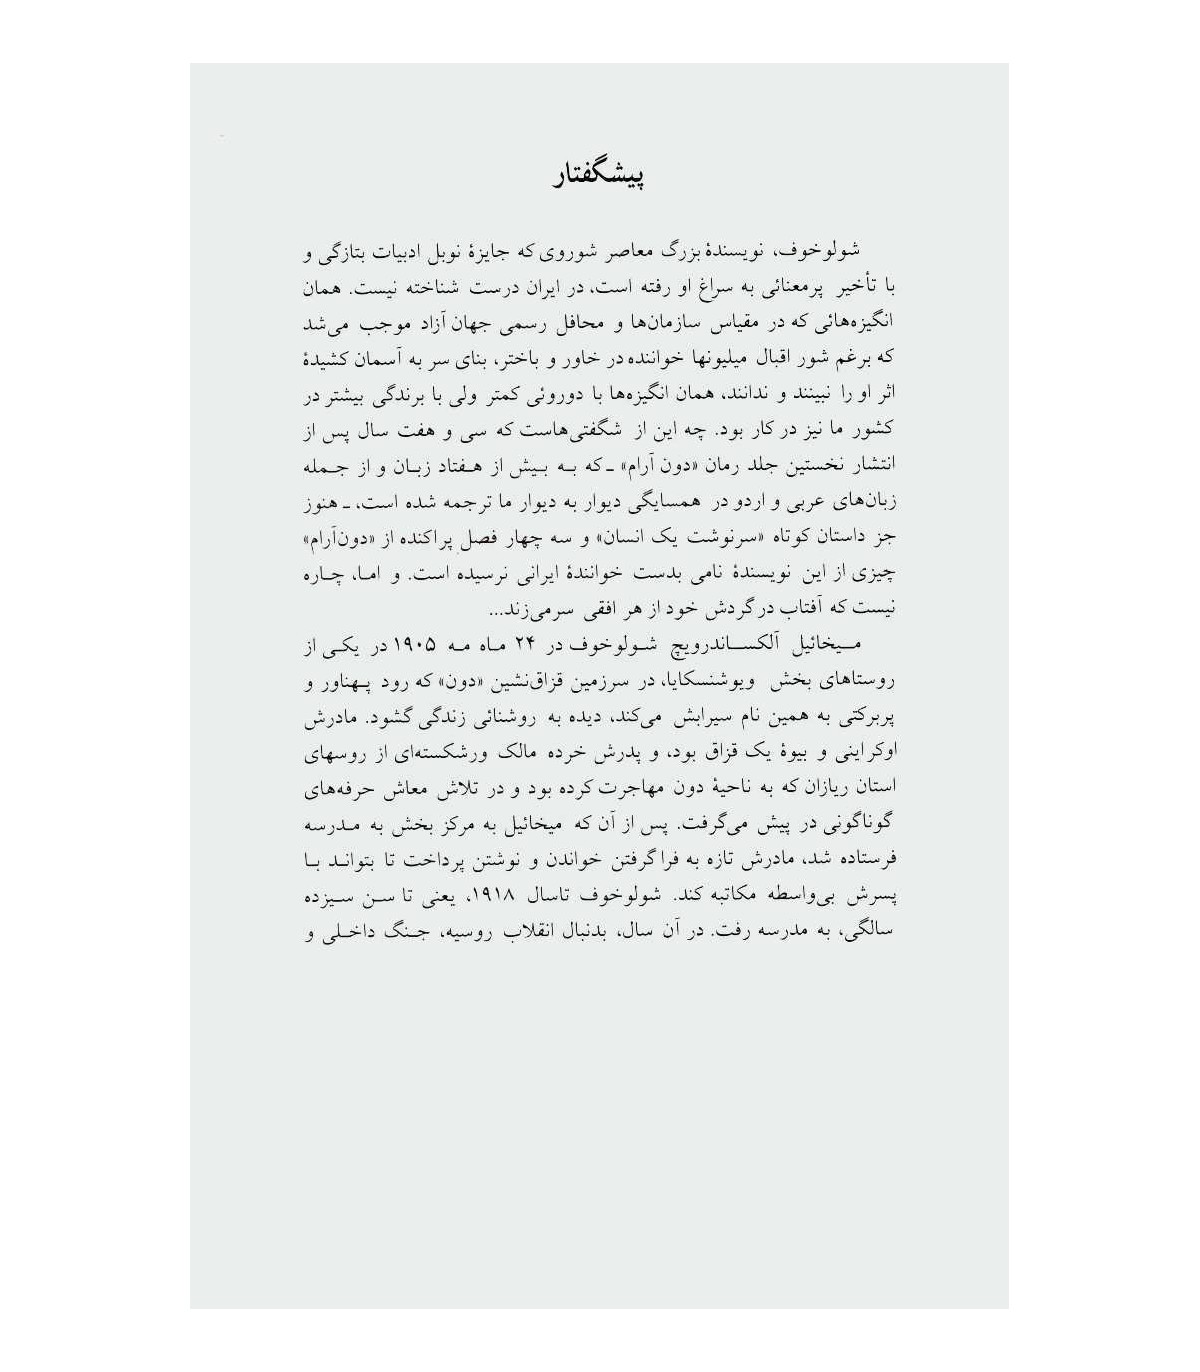 پیشگفتار
شولوخوف، نویسندهٔ بزرگ معاصر شوروی که جایزهٔ نوبل ادبیات بتازگی و
با تأخیر پرمعنائی به سراغ او رفته است، در ایران درست شناخته نیست. همان
انگیزه‌هائی که در مقیاس سازمان‌ها و محافل رسمی جهان آزاد موجب می‌شد
که برغم شور اقبال میلیونها خواننده در خاور و باختر، بنای سر به آسمان کشیدهٔ
اثر او را نبینند و ندانند، همان انگیزه‌ها با دوروئی کمتر ولی با برندگی بیشتر در
کشور ما نیز در کار بود. چه این از شگفتی‌هاست که سی و هفت سال پس از
انتشار نخستین جلد رمان «دون آرام» ـ که به بیش از هفتاد زبان و از جمله
زبان‌های عربی و اردو در همسایگی دیوار به دیوار ما ترجمه شده است، ـ هنوز
جز داستان کوتاه «سرنوشت یک انسان» و سه چهار فصل پراکنده از «دون‌آرام»
چیزی از این نویسندهٔ نامی بدست خوانندهٔ ایرانی نرسیده است. و اما، چاره
نیست که آفتاب در گردش خود از هر افقی سرمی‌زند...
میخائیل آلکساندرویچ شولوخوف در ۲۴ ماه مه ۱۹۰۵ در یکی از
روستاهای بخش ویوشنسکایا، در سرزمین قزاق‌نشین «دون» که رود پهناور و
پربرکتی به همین نام سیرابش می‌کند، دیده به روشنائی زندگی گشود. مادرش
اوکراینی و بیوهٔ یک قزاق بود، و پدرش خرده مالک ورشکسته‌ای از روسهای
استان ریازان که به ناحیهٔ دون مهاجرت کرده بود و در تلاش معاش حرفه‌های
گوناگونی در پیش می‌گرفت. پس از آن که میخائیل به مرکز بخش به مدرسه
فرستاده شد، مادرش تازه به فراگرفتن خواندن و نوشتن پرداخت تا بتواند با
پسرش بی‌واسطه مکاتبه کند. شولوخوف تاسال ۱۹۱۸، یعنی تا سن سیزده
سالگی، به مدرسه رفت. در آن سال، بدنبال انقلاب روسیه، جنگ داخلی و